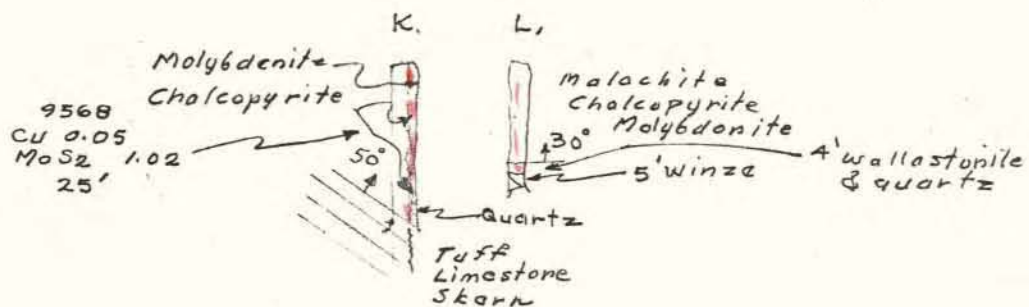 K.
L,
Molybdenite
Chalcopyrite
9568
Cu 0.05
MoS2 1.02
25'
50°
Quartz
Tuff
Limestone
Skarn
Malachite
Chalcopyrite
Molybdonite
30°
5' Winze
4' Wallastonile
& quartz